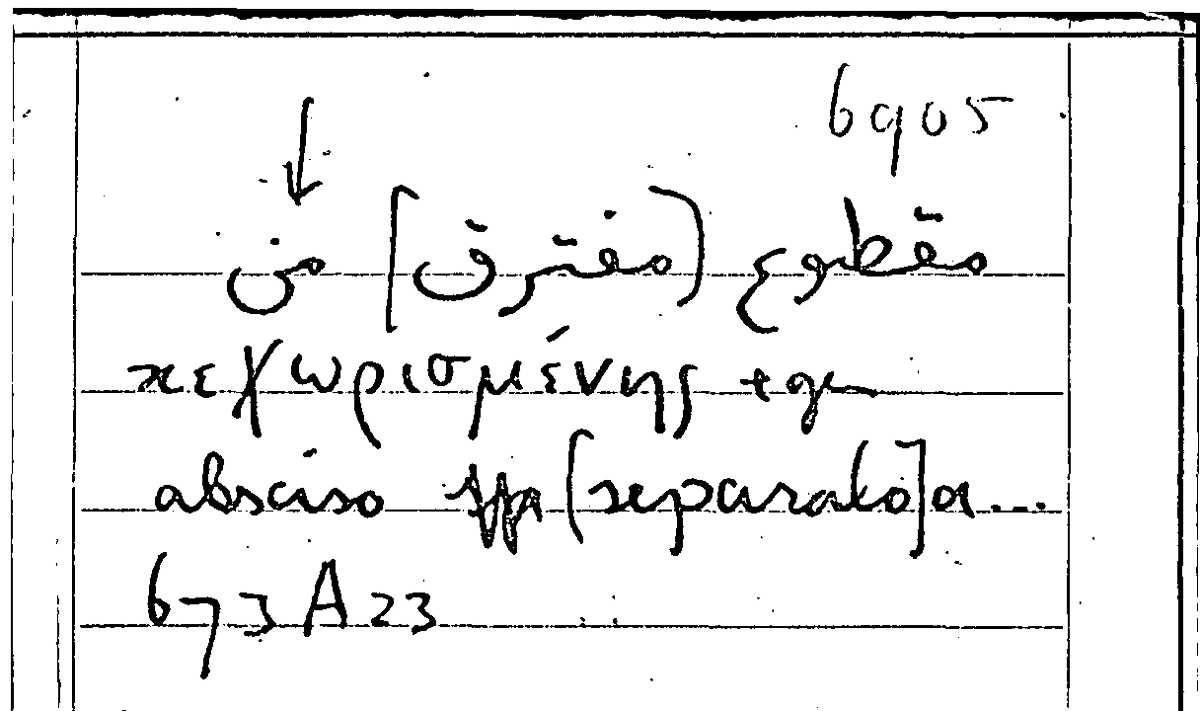 6905
↓
مقطوع (مفترق) من
κεχωρισμένης + gen
absciso [separato] a...
673A23